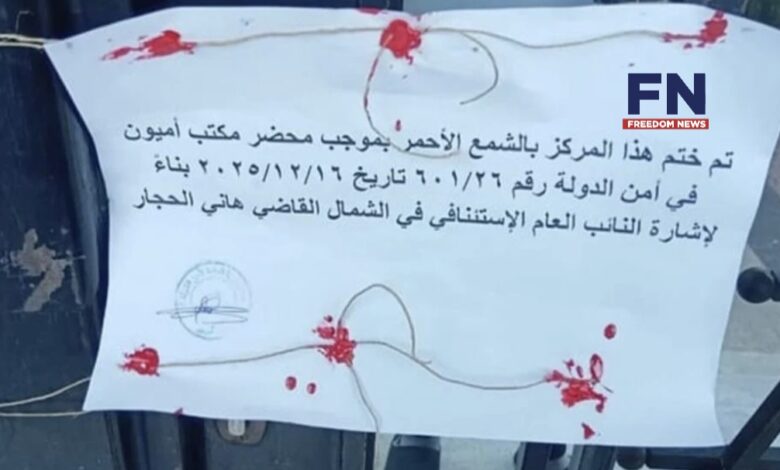 FN
FREEDOM NEWS
تم ختم هذا المركز بالشمع الأحمر بموجب محضر مكتب أميون
في أمن الدولة رقم ٦٠١/٢٦ تاريخ ٢٠٢٥/١٢/١٦ بناءً
لإشارة النائب العام الإستئنافي في الشمال القاضي هاني الحجار